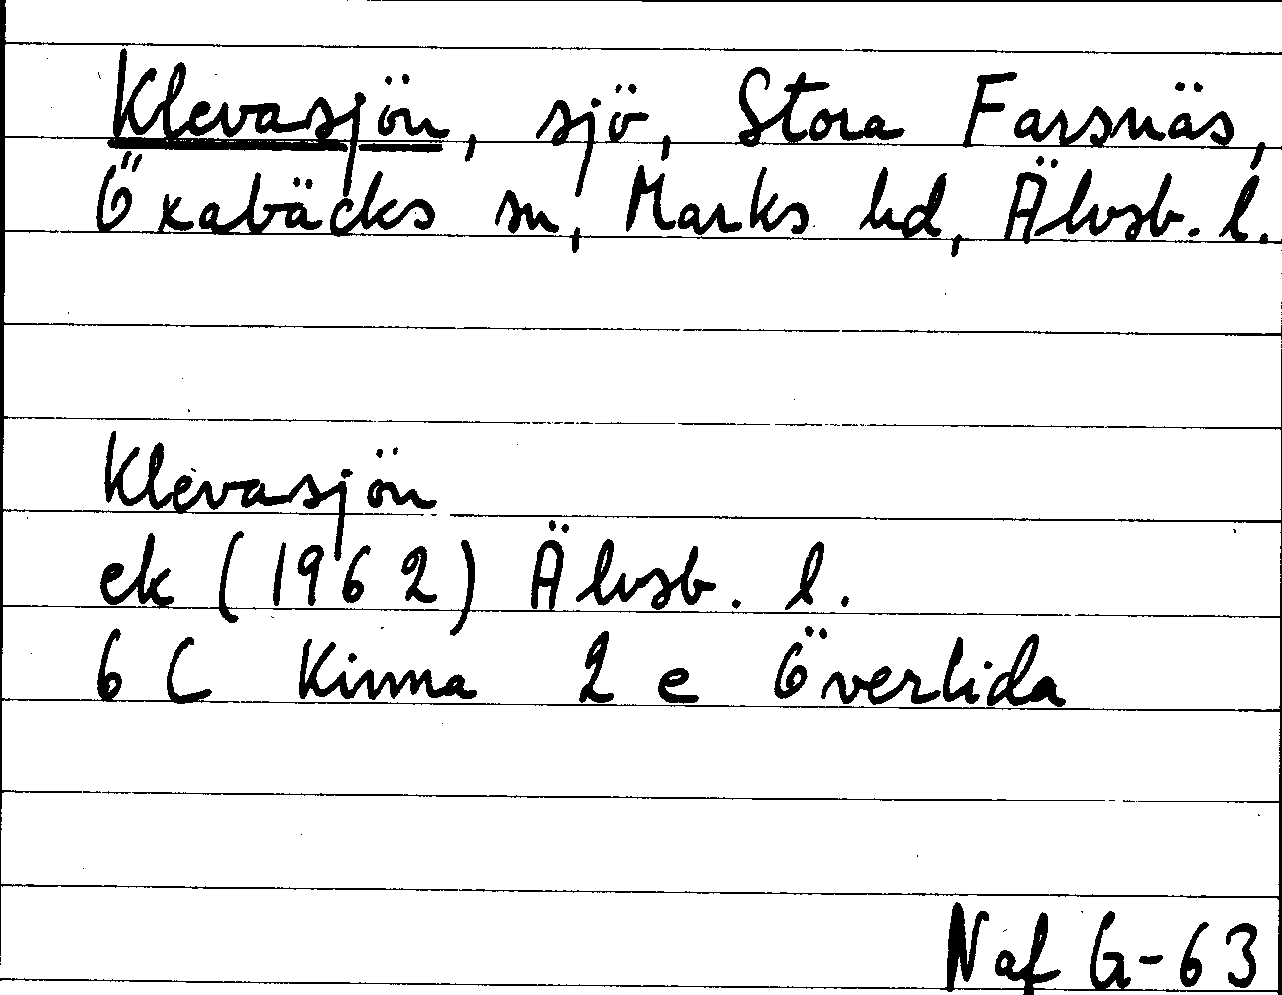 Klevasjön, sjö, Stora Farsnäs,
Öxabäcks sn, Marks hd, Älvsb. l.
Klevasjön
ek (1962) Älvsb. l.
6 C Kinna 2 e Överlida
Naf G-63